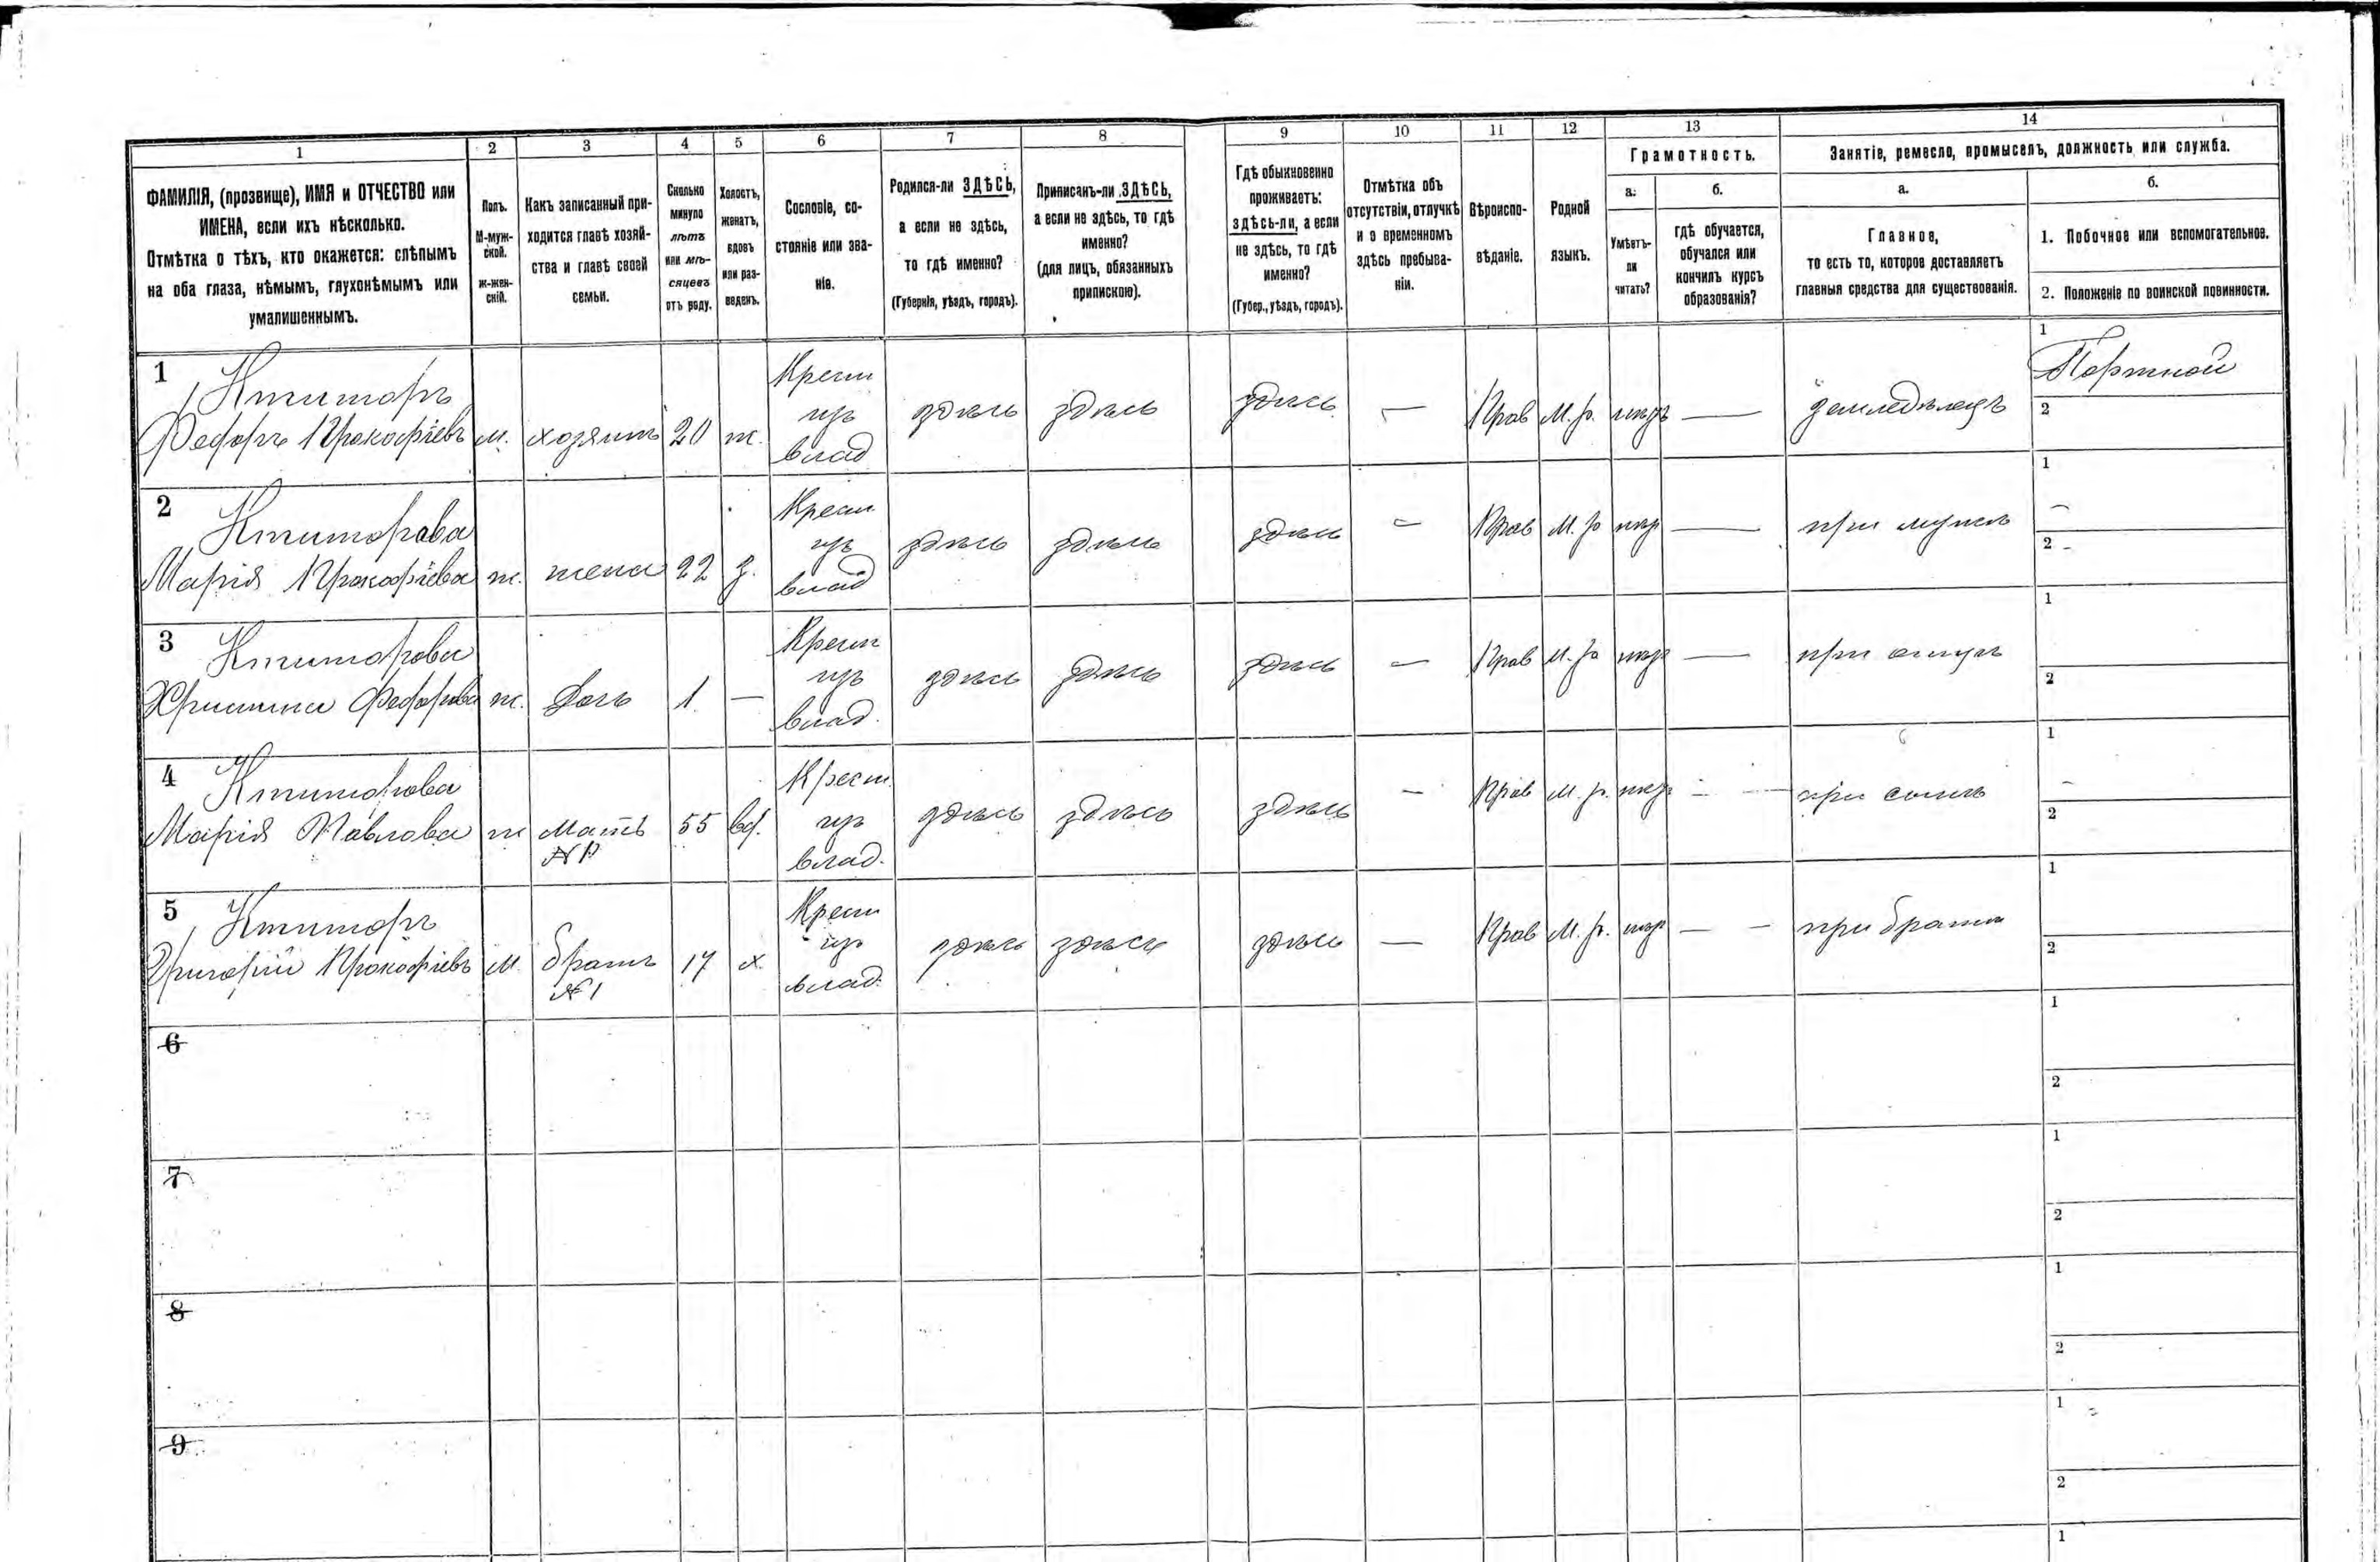 1 2 3 4 5 6 7 8 9 10 11 12 13 14
ФАМИЛІЯ, (прозвище), ИМЯ и ОТЧЕСТВО или
ИМЕНА, если ихъ нѣсколько.
Отмѣтка о тѣхъ, кто окажется: слѣпымъ
на оба глаза, нѣмымъ, глухонѣмымъ или
умалишеннымъ.
Полъ.
М-муж-
ской.
ж-жен-
скій.
Какъ записанный при-
ходится главѣ хозяй-
ства и главѣ своей
семьи.
Сколько
минуло
лѣтъ
или мѣ-
сяцевъ
отъ роду.
Холостъ,
женатъ,
вдовъ
или раз-
веденъ.
Сословіе, со-
стояніе или зва-
ніе.
Родился-ли ЗДѢСЬ,
а если не здѣсь,
то гдѣ именно?
(Губернія, уѣздъ, городъ).
Приписанъ-ли ЗДѢСЬ,
а если не здѣсь, то гдѣ
именно?
(для лицъ, обязанныхъ
припискою).
Гдѣ обыкновенно
проживаетъ:
здѣсь-ли, а если
не здѣсь, то гдѣ
именно?
(Губер., уѣздъ, городъ).
Отмѣтка объ
отсутствіи, отлучкѣ
и о временномъ
здѣсь пребыва-
ніи.
Вѣроиспо-
вѣданіе.
Родной
языкъ.
Грамотность.
а.
Умѣетъ-
ли
читать?
б.
гдѣ обучается,
обучался или
кончилъ курсъ
образованія?
Занятіе, ремесло, промыселъ, должность или служба.
а.
Главное,
то есть то, которое доставляетъ
главныя средства для существованія.
б.
1. Побочное или вспомогательное.
2. Положеніе по воинской повинности.
1 Ктиторъ
Федоръ Прокофіевъ м. хозяинъ 20 ж. Крест из влад здѣсь здѣсь здѣсь — Прав М.р. — земледѣлецъ 1 Портной
2
2 Ктиторова
Марія Прокофіева ж. жена 22 з. Крест из влад здѣсь здѣсь здѣсь — Прав М.р — при мужѣ 1 —
2 -
3 Ктиторова
Христина Федорова ж. Дочь 1 — Крест из влад. здѣсь здѣсь здѣсь — Прав М.р — при отцѣ 1
2
4 Ктиторова
Марія Павлова ж Мать 55 вд. Крест. из влад. здѣсь здѣсь здѣсь — Прав М.р. — при сынѣ 1 —
2
5 Ктиторъ
Григорій Прокофіевъ м. братъ №1 17 х. Крест из влад. здѣсь здѣсь здѣсь — Прав М.р. — — при братѣ 1
2
6 1
2
7 1
2
8 1
2
9 1
2
1